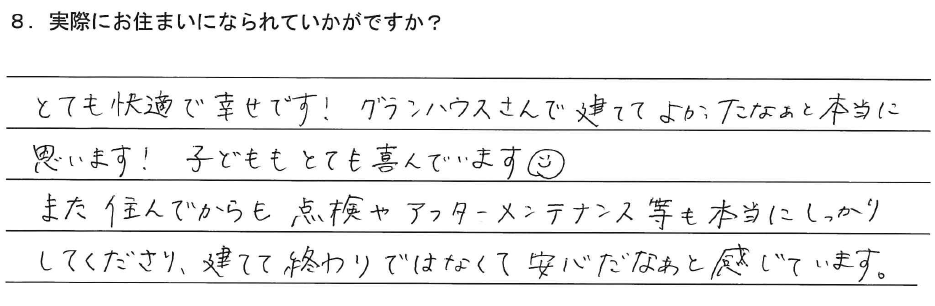 8. 実際にお住まいになられていかがですか？
とても快適で幸せです！ グランハウスさんで建ててよかったなぁと本当に
思います！ 子どももとても喜んでいます☺
また住んでからも点検やアフターメンテナンス等も本当にしっかり
してくださり、建てて終わりではなくて安心だなぁと感じています。